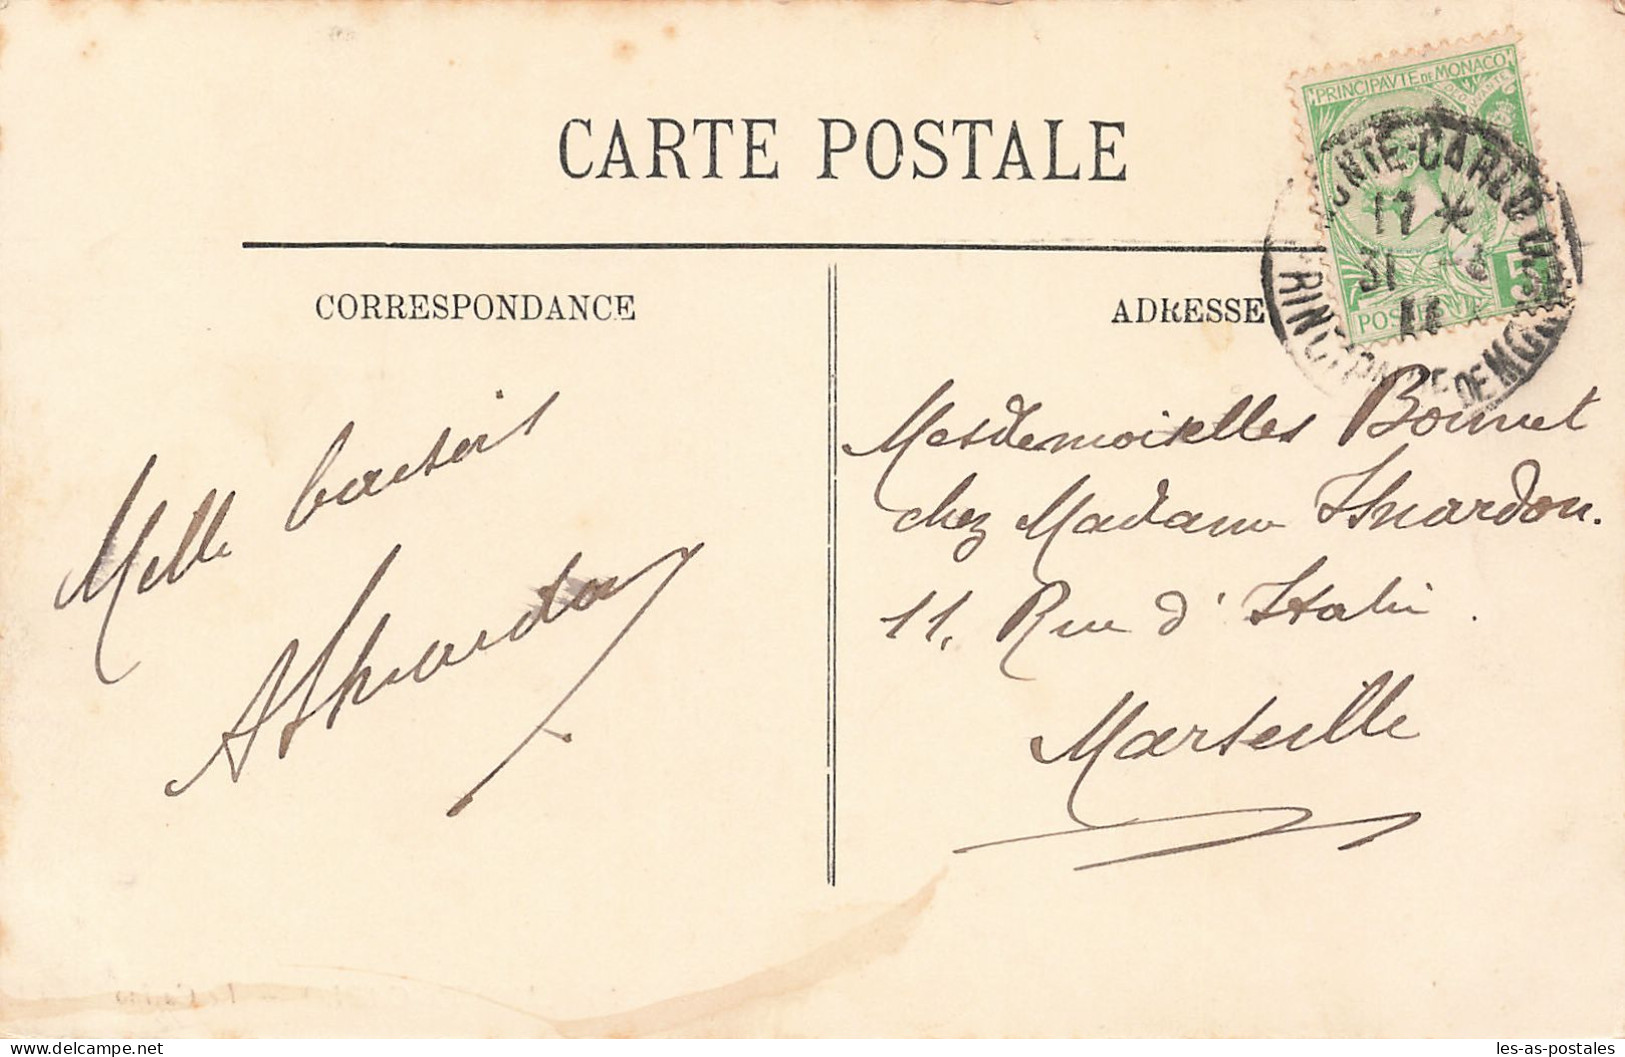 CARTE POSTALE
PRINCIPAVTE DE MONACO
5
MONTE-CARLO
17 *
31 -3
11
PRINCIPAUTE DE MONACO
CORRESPONDANCE
ADRESSE
Mille baisers
Mesdemoiselles Bonnet
chez Madame Isnardon.
11, Rue d'Italie.
Marseille
AIsnardon
delcampe.net
les-as-postales